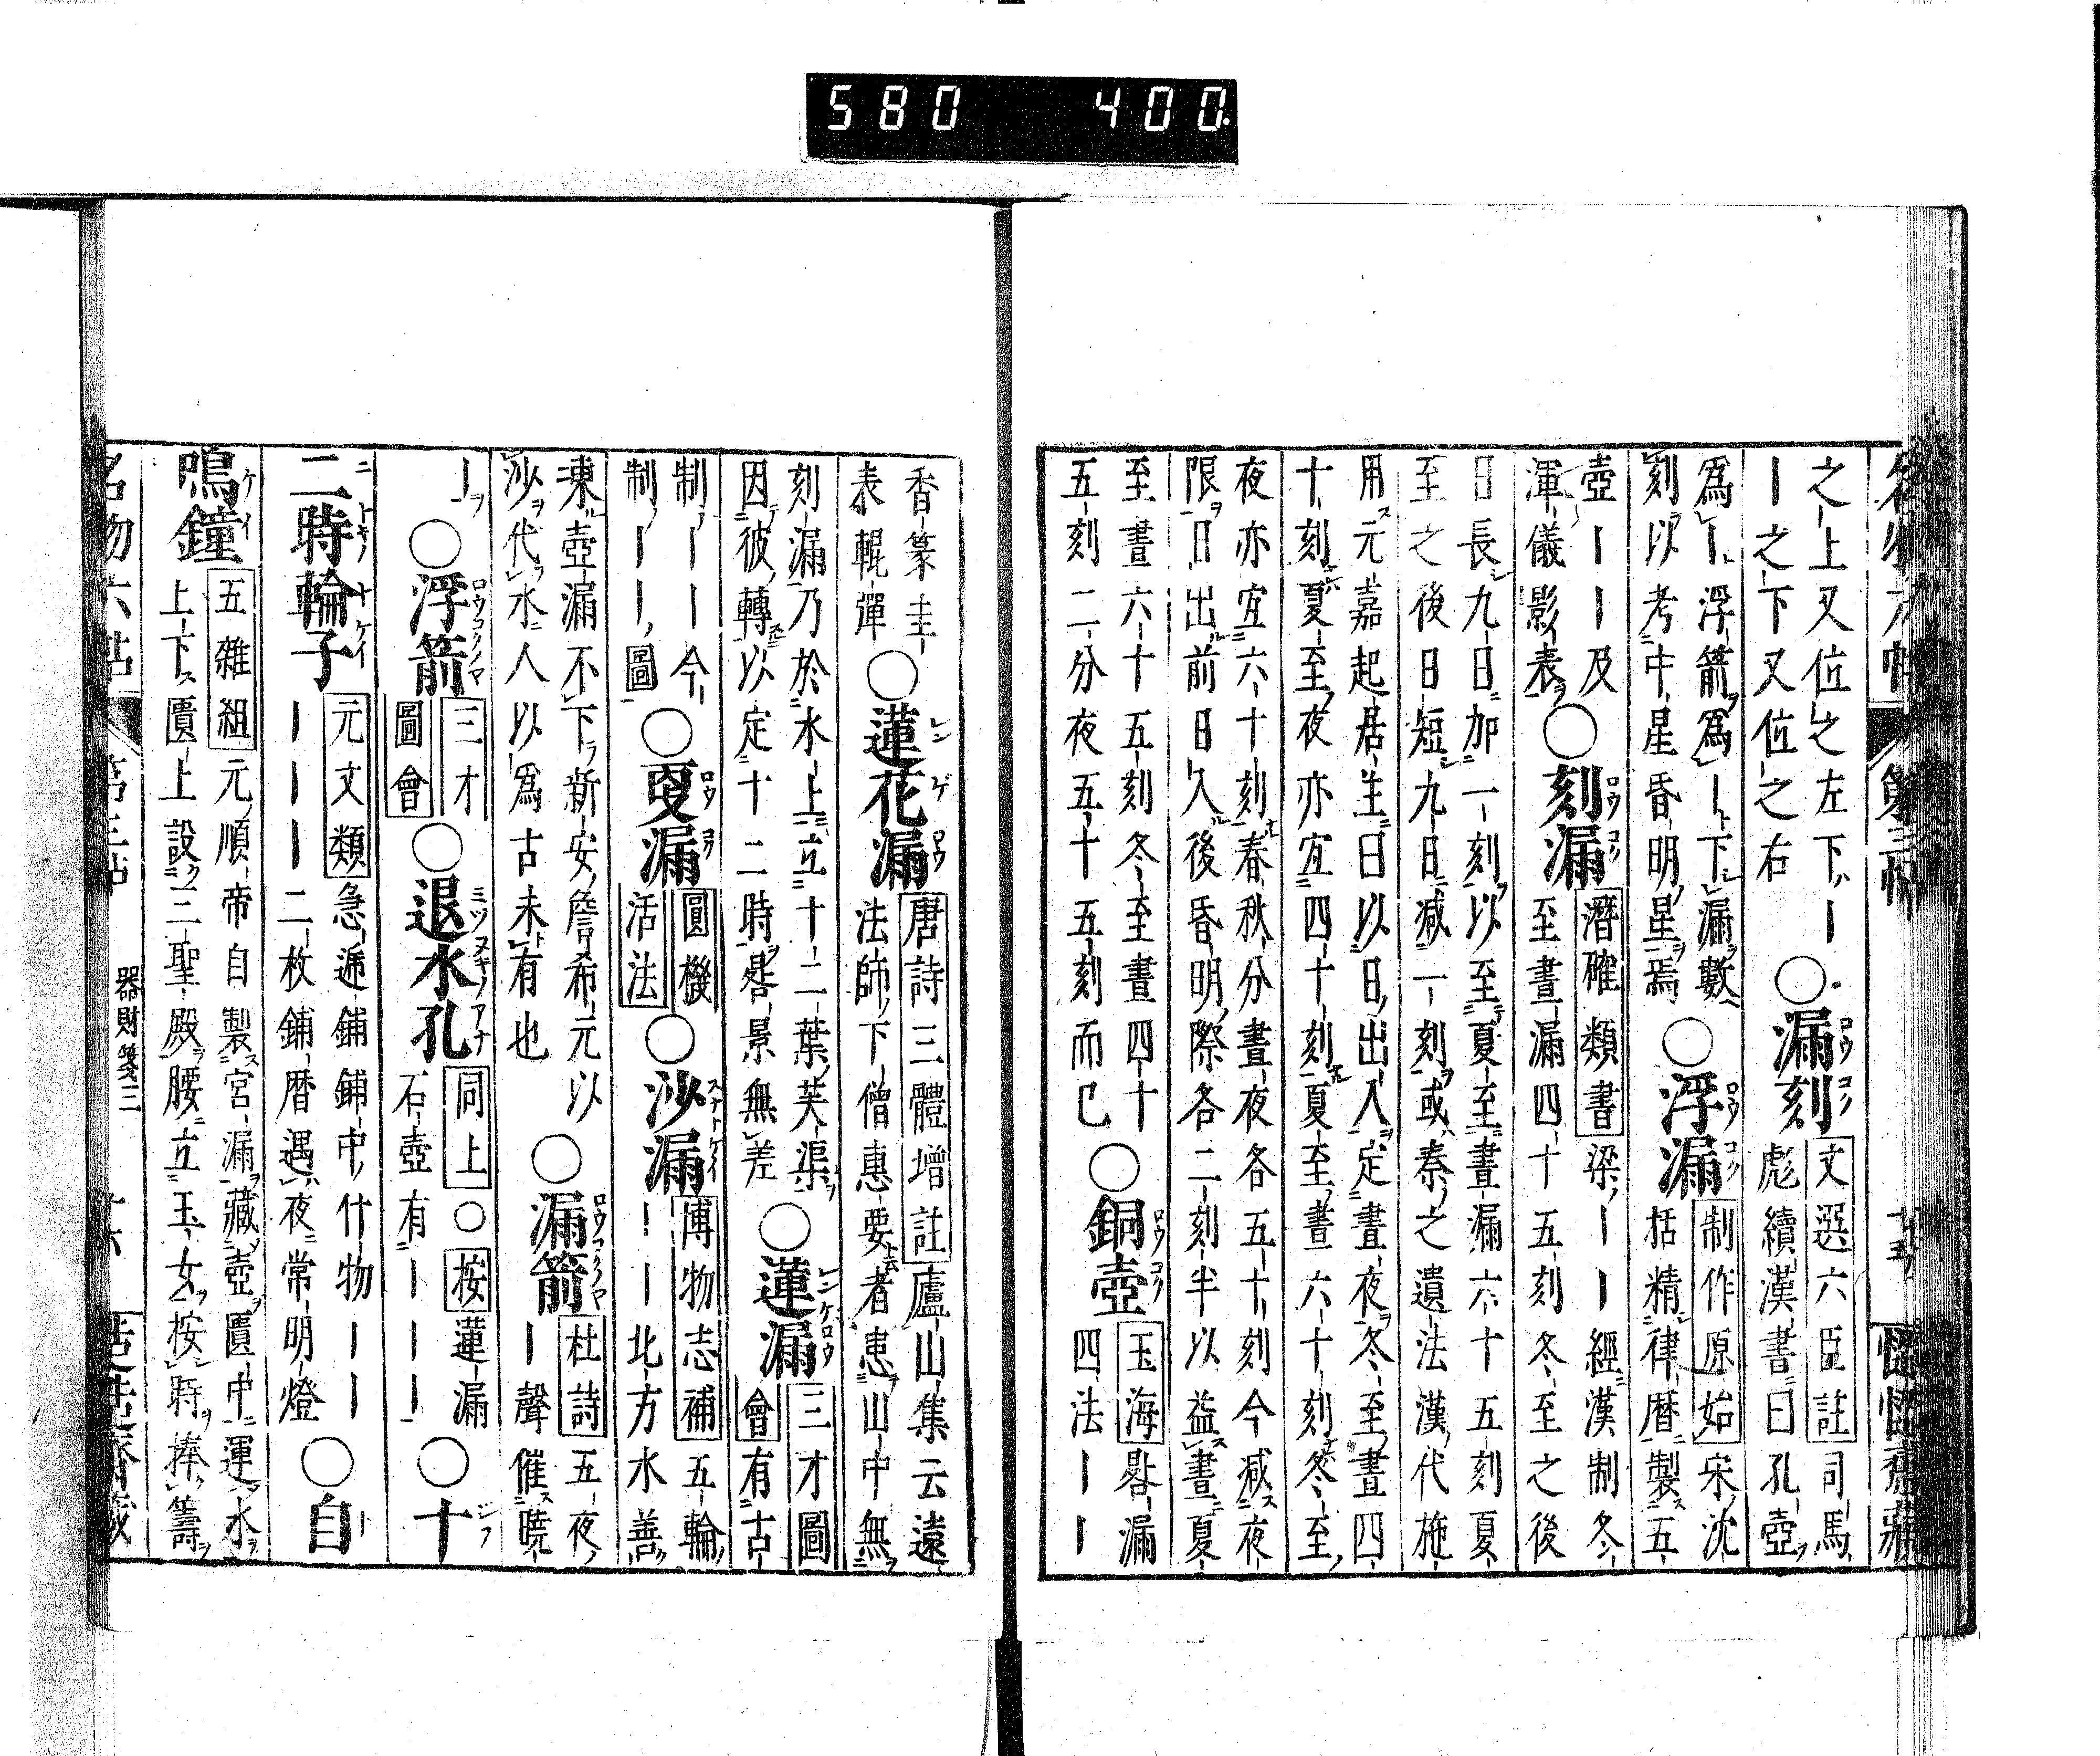 580 400.
之上又位之左下ー
ー之下又位之右
○漏刻
文選六臣註司馬
彪續漢書曰孔壺
爲ー浮箭爲ー下漏數
刻以考中星昏明星焉
○浮漏
制作原始宋沈
括精律暦製五
壺ーー及
渾儀影表
○刻漏
潛確類書梁ーー經漢制冬
至晝漏四十五刻冬至之後
日長九日加一刻以至夏至晝漏六十五刻夏
至之後日日短九日减一刻或秦之遺法漢代施
用元嘉起居注曰以日出入定晝夜冬至晝四
十刻夏至夜亦宜四十刻夏至晝六十刻冬至
夜亦宜六十刻春秋分晝夜各五十刻今减夜
限日出前日入後昏明際各二刻半以益晝夏
至晝六十五刻冬至晝四十
五刻二分夜五十五刻而已
○銅壺
玉海晷漏
四法ーー
香篆圭
表輥彈
○蓮花漏
唐詩三體增註廬山集云遠
法師下僧惠要者患山中無
刻漏乃於水上立十二葉芙渠
因彼轉以定十二時晷景無差
○蓮漏
三才圖
會有古
制ーー今
制ーー圖
○夏漏
圓機
活法
○沙漏
博物志補五輪
ーー北方水善
凍壺漏不下新安詹希元以
沙代水人以爲古未有也
○漏箭
杜詩五夜
ー聲催曉
ー
○浮箭
三才
圖會
○退水孔
同上○按蓮漏
石壺有ーーー
○十
二時輪子
元文類急遞鋪鋪中什物ーー
ーーー二枚鋪暦遇夜常明燈
○自
鳴鐘
五雜組元順帝自製宮漏藏壺匱中運水
上下匱上設三聖殿腰立玉女按時捧籌
器財箋三